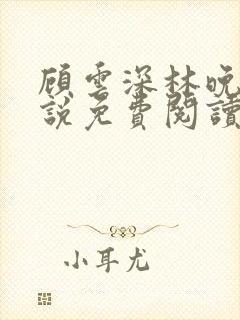 顾雲深林晚
說免費閱讀
小耳尤